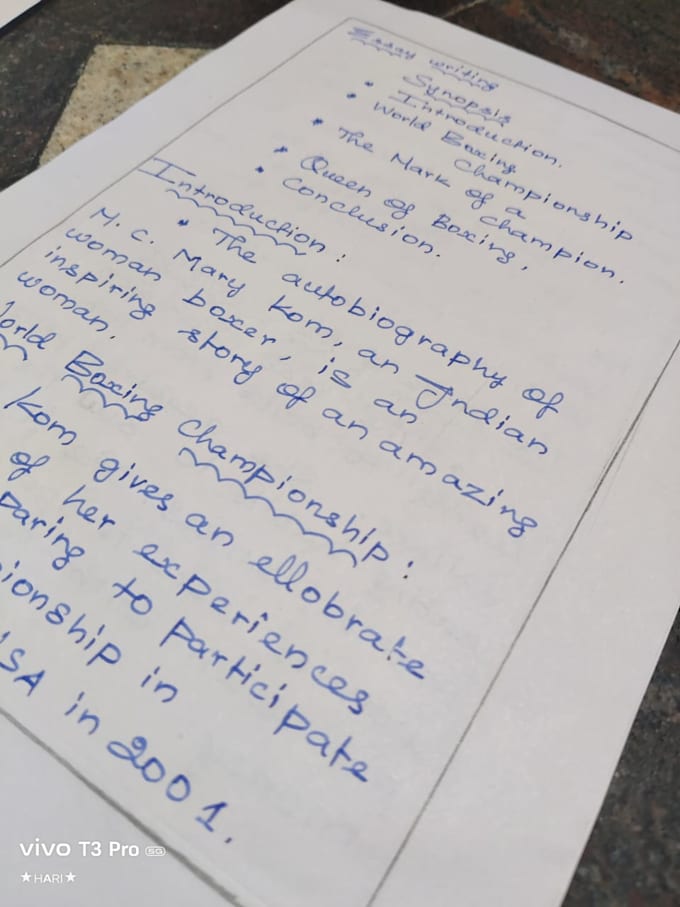 Essay writing
Synopsis
• Introduction.
• World Boxing
Championship
• The Mark of a
Champion.
• Queen of Boxing,
• Conclusion.
Introduction:
• The autobiography of
M. C. Mary Kom, an Indian
woman boxer, is an
inspiring story of an amazing
woman.
orld Boxing Championship:
Kom gives an ellobrate
of her experiences
paring to participate
ionship in
USA in 2001.
vivo T3 Pro 5G
★HARI★